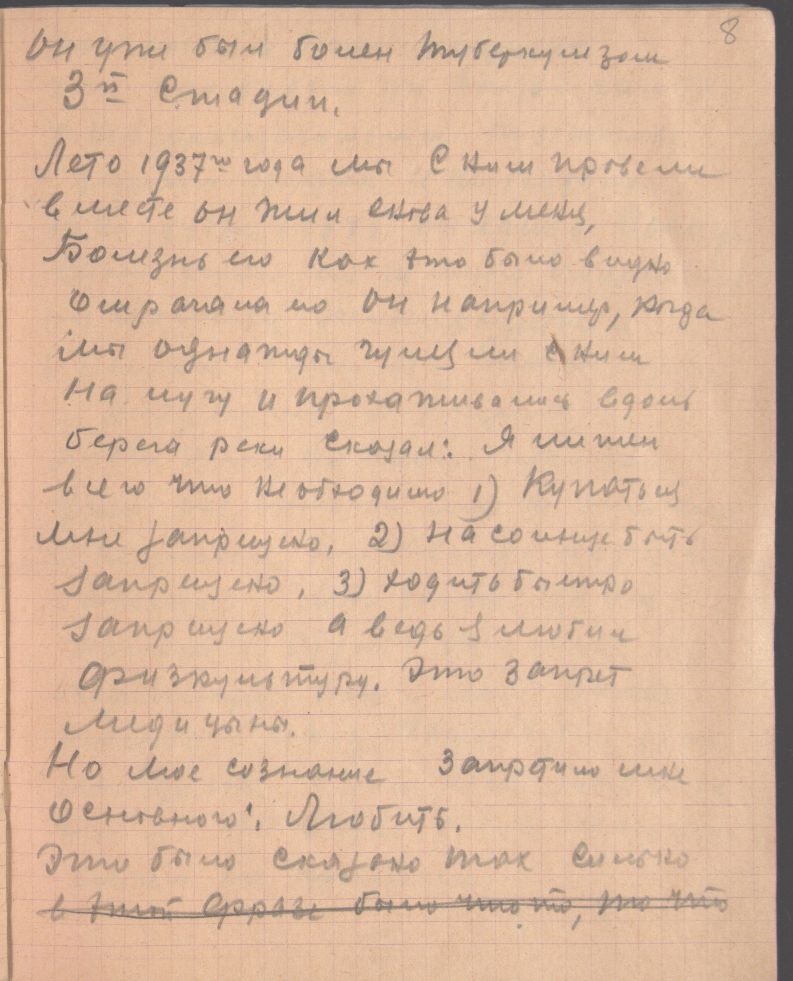 8
он уже был болен туберкулезом
3й стадии.
Лето 1937го года мы с ним провели
вместе он жил снова у меня,
Болезнь его как это было видно
омрачала но он например, когда
мы однажды гуляли с ним
на лугу и прохаживались вдоль
берега реки сказал: Я лишен
всего что необходимо 1) Купаться
мне запрещено, 2) На солнце быть
запрещено, 3) ходить быстро
запрещено а ведь я любил
физкультуру. Это запрет
медицыны.
Но мое сознание запретило мне
основного: Любить.
Это было сказано так сильно
в этой фразе было что то, то что